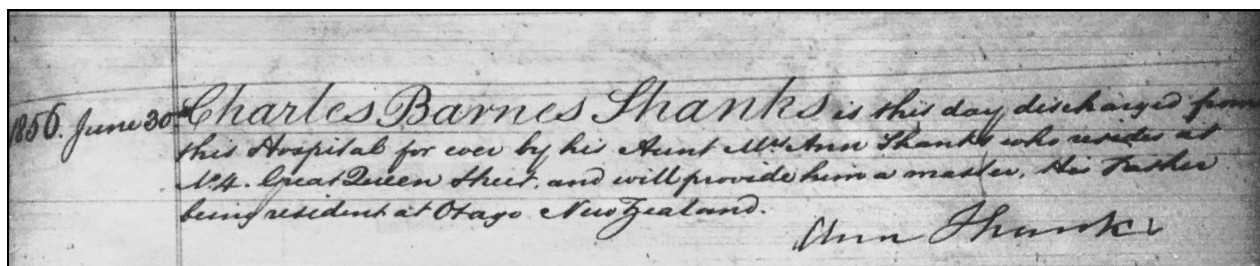 1856. June 30th Charles Barnes Shanks is this day discharged from
this Hospital for ever by his Aunt Mrs Ann Shanks who resides at
No 4. Great Queen Street, and will provide him a master, His Father
being resident at Otago New Zealand.
Ann Shanks